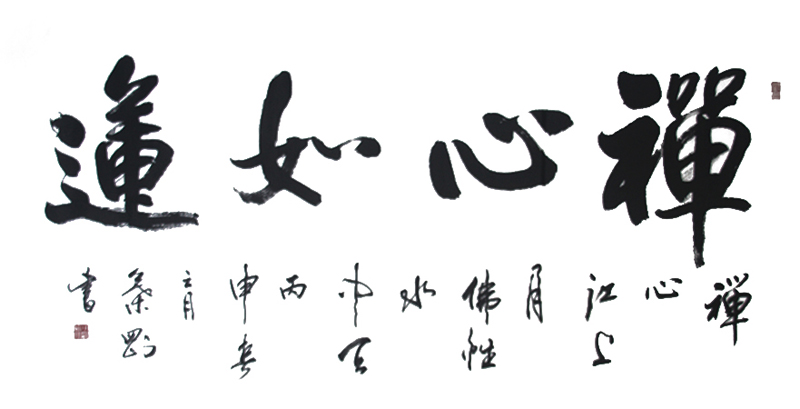 禪心如蓮
禪心江上月佛性水中天丙申年六月剛書